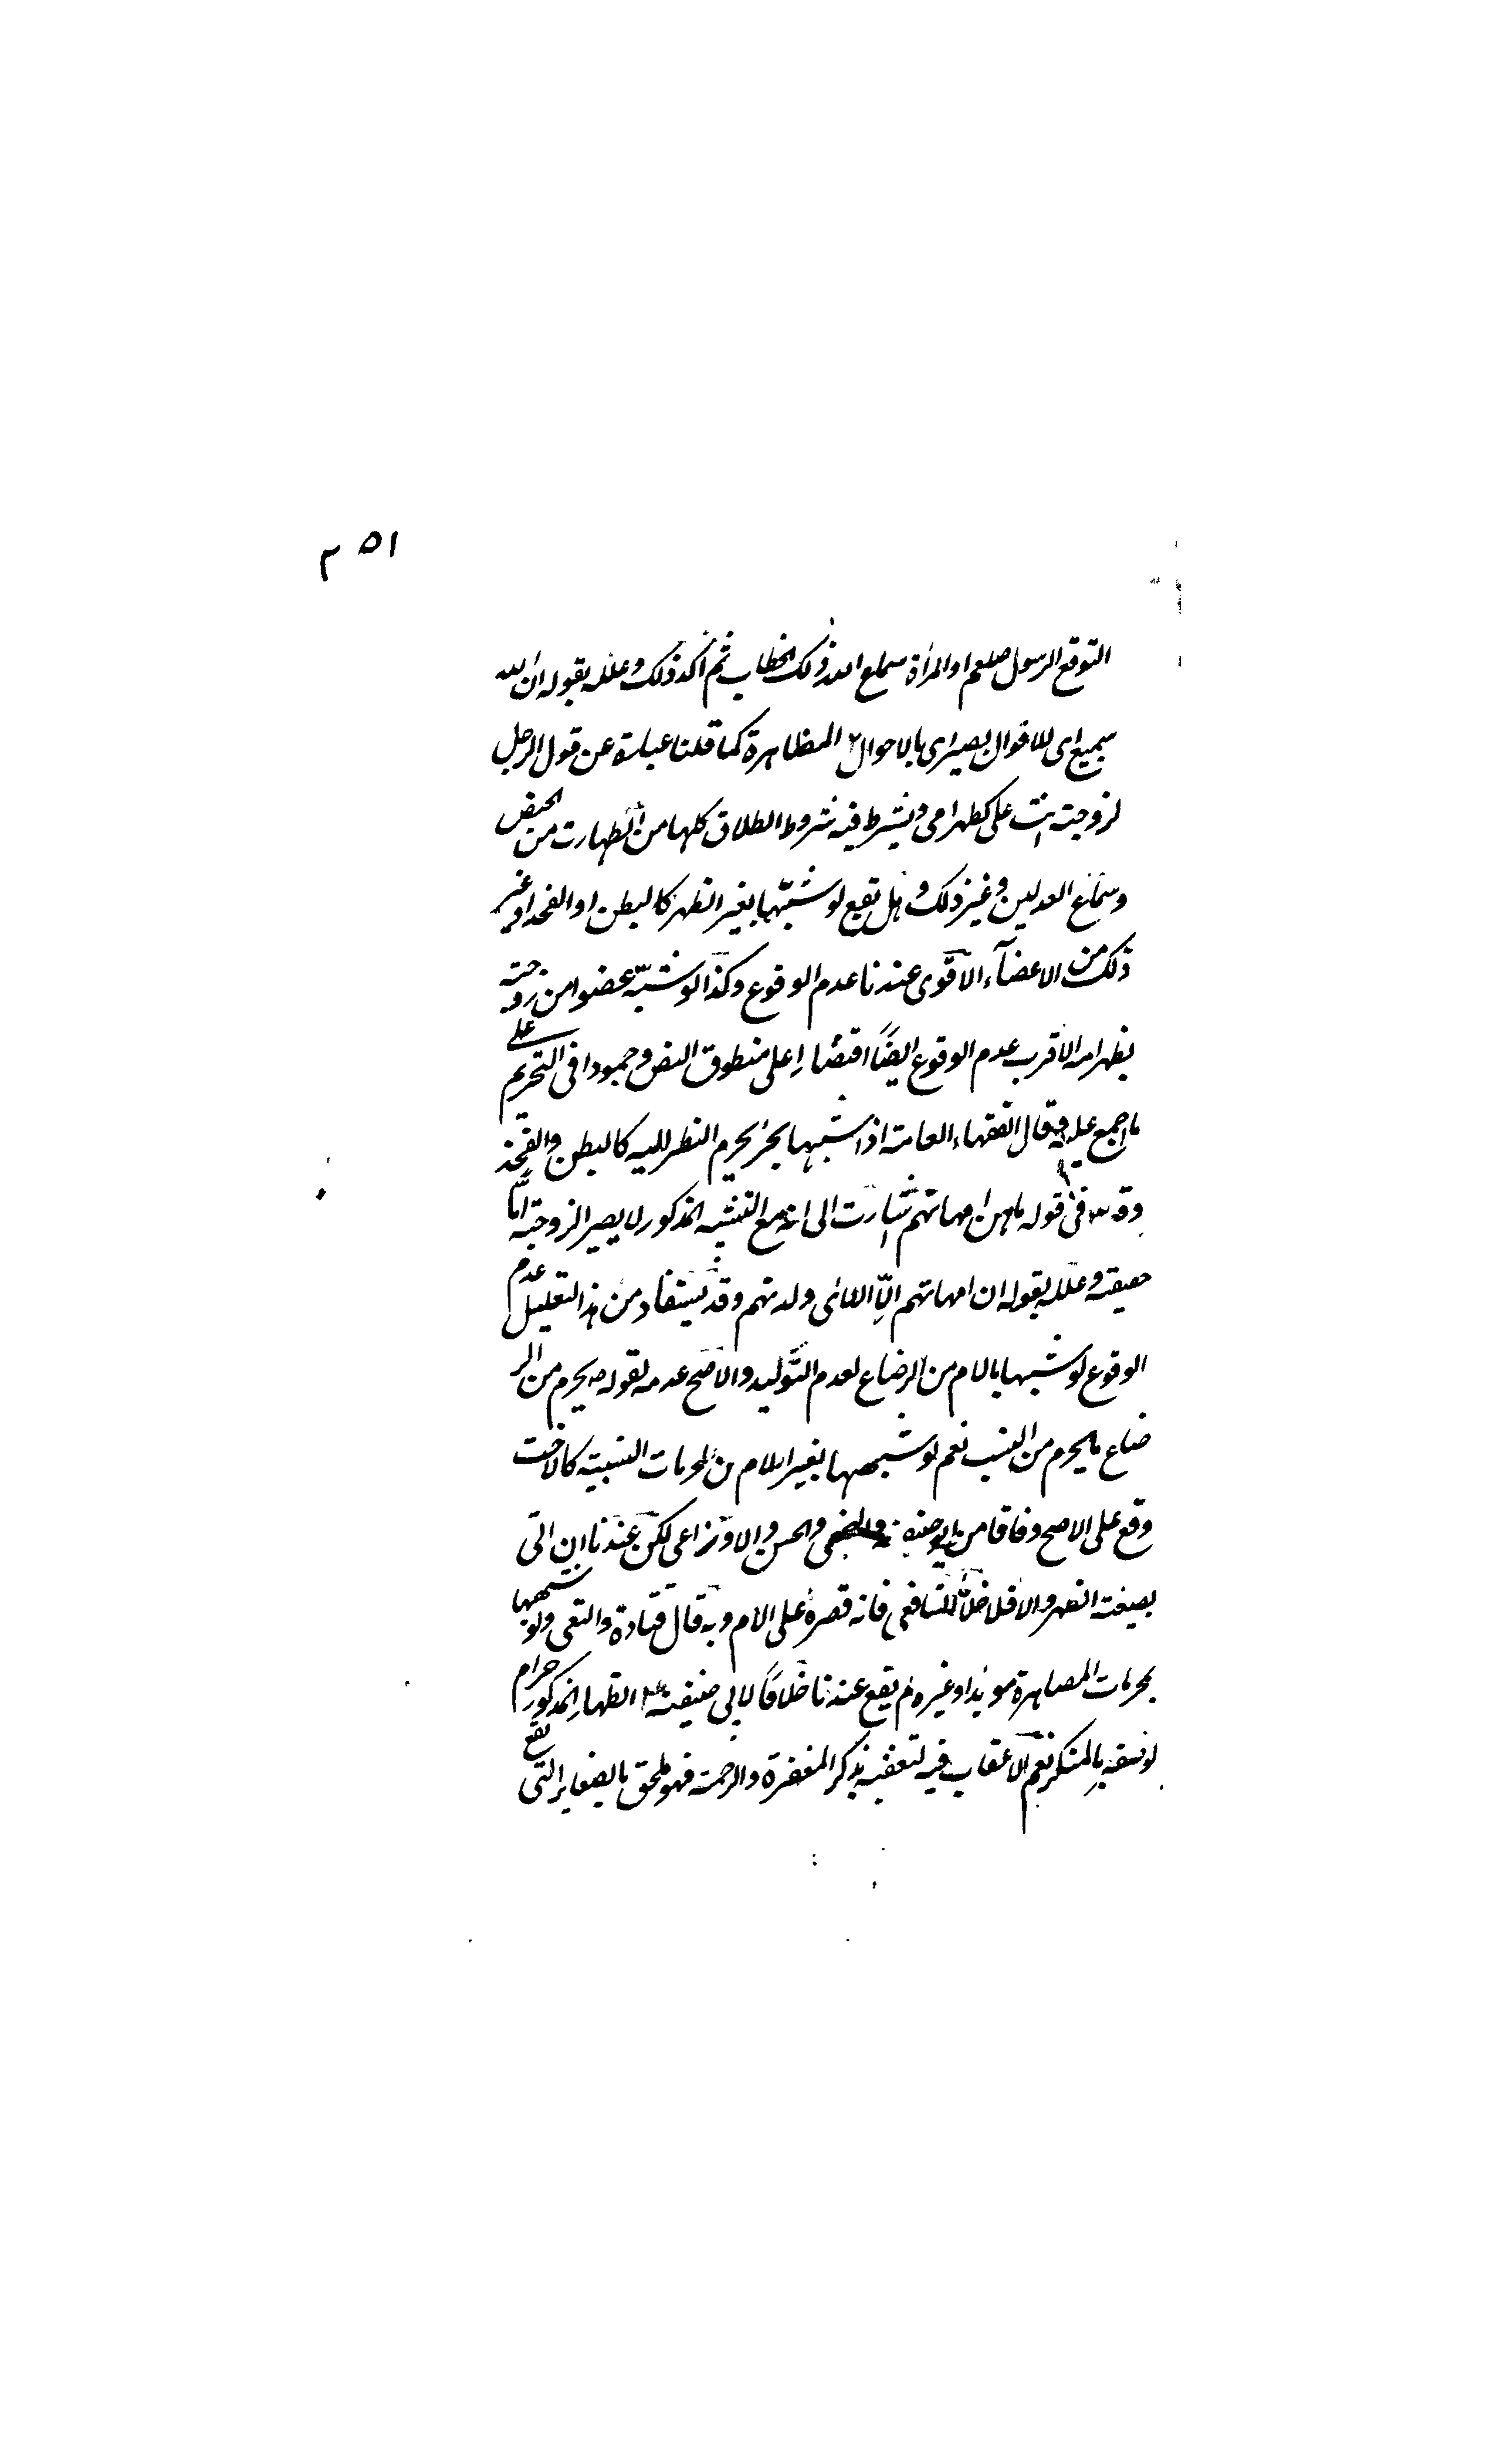 ٢٥١
التوقع الرسول صلعم او المرأة سماع الله ذلك الخطاب ثم اكد ذلك وعلله بقوله ان الله
سميع اى للاقوال بصير اى بالاحوال ٢ المظاهرة كما قلنا عبارة عن قول الرجل
لزوجته انت على كظهر امى ويشترط فيه شروط الطلاق كلها من الطهارت من الحيض
وسماع العدلين وغير ذلك وهل تقع لو شبّهها بغير الظهر كالبطن او الفخذ او غير
ذلك من الاعضآء الاقوى عندنا عدم الوقوع وكذا لو شبّه عضوا من زوجته
بظهر امه الاقرب عدم الوقوع ايضًا اقتصارا على منطوق النص وجمودا فى التحريم على
ما اجمع عليه وقال الفقهاء العامة اذا شبهها بجزء يحرم النظر اليه كالبطن والفخذ
وقع فى قوله ما هن امهاتهم اشارت الى انه مع التشبيه المذكور لا يصير الزوجة امّا
حقيقة وعلله بقوله ان امهاتهم الّا اللائى ولدنهم وقد يستفاد من هذا التعليل عدم
الوقوع لو شبهها بالام من الرضاع لعدم التّوليد والاصح عدمه لقوله ص يحرم من الر
ضاع ما يحرم من النسب نعم لو شبهها بغير الام من المحرمات النسبية كالاخت
وقع على الاصح وفاقا من ابو حنيفة والنخعى والحسن والاوزاعى لكن عندنا ان اتى
بصيغة الظهر والا فلا خلافا للشافعى فانه قصره على الام وبه قال قتادة والشعبى ولو شبهها
بمحرمات المصاهرة موبدا وغيره لم يقع عندنا خلافًا لابى حنيفة ٣ الظهار المذكور حرام
لوصفه بالمنكر نعم لا عقاب فيه لتعقبه بذكر المغفرة والرحمة فهو ملحق بالصغاير التى تقع